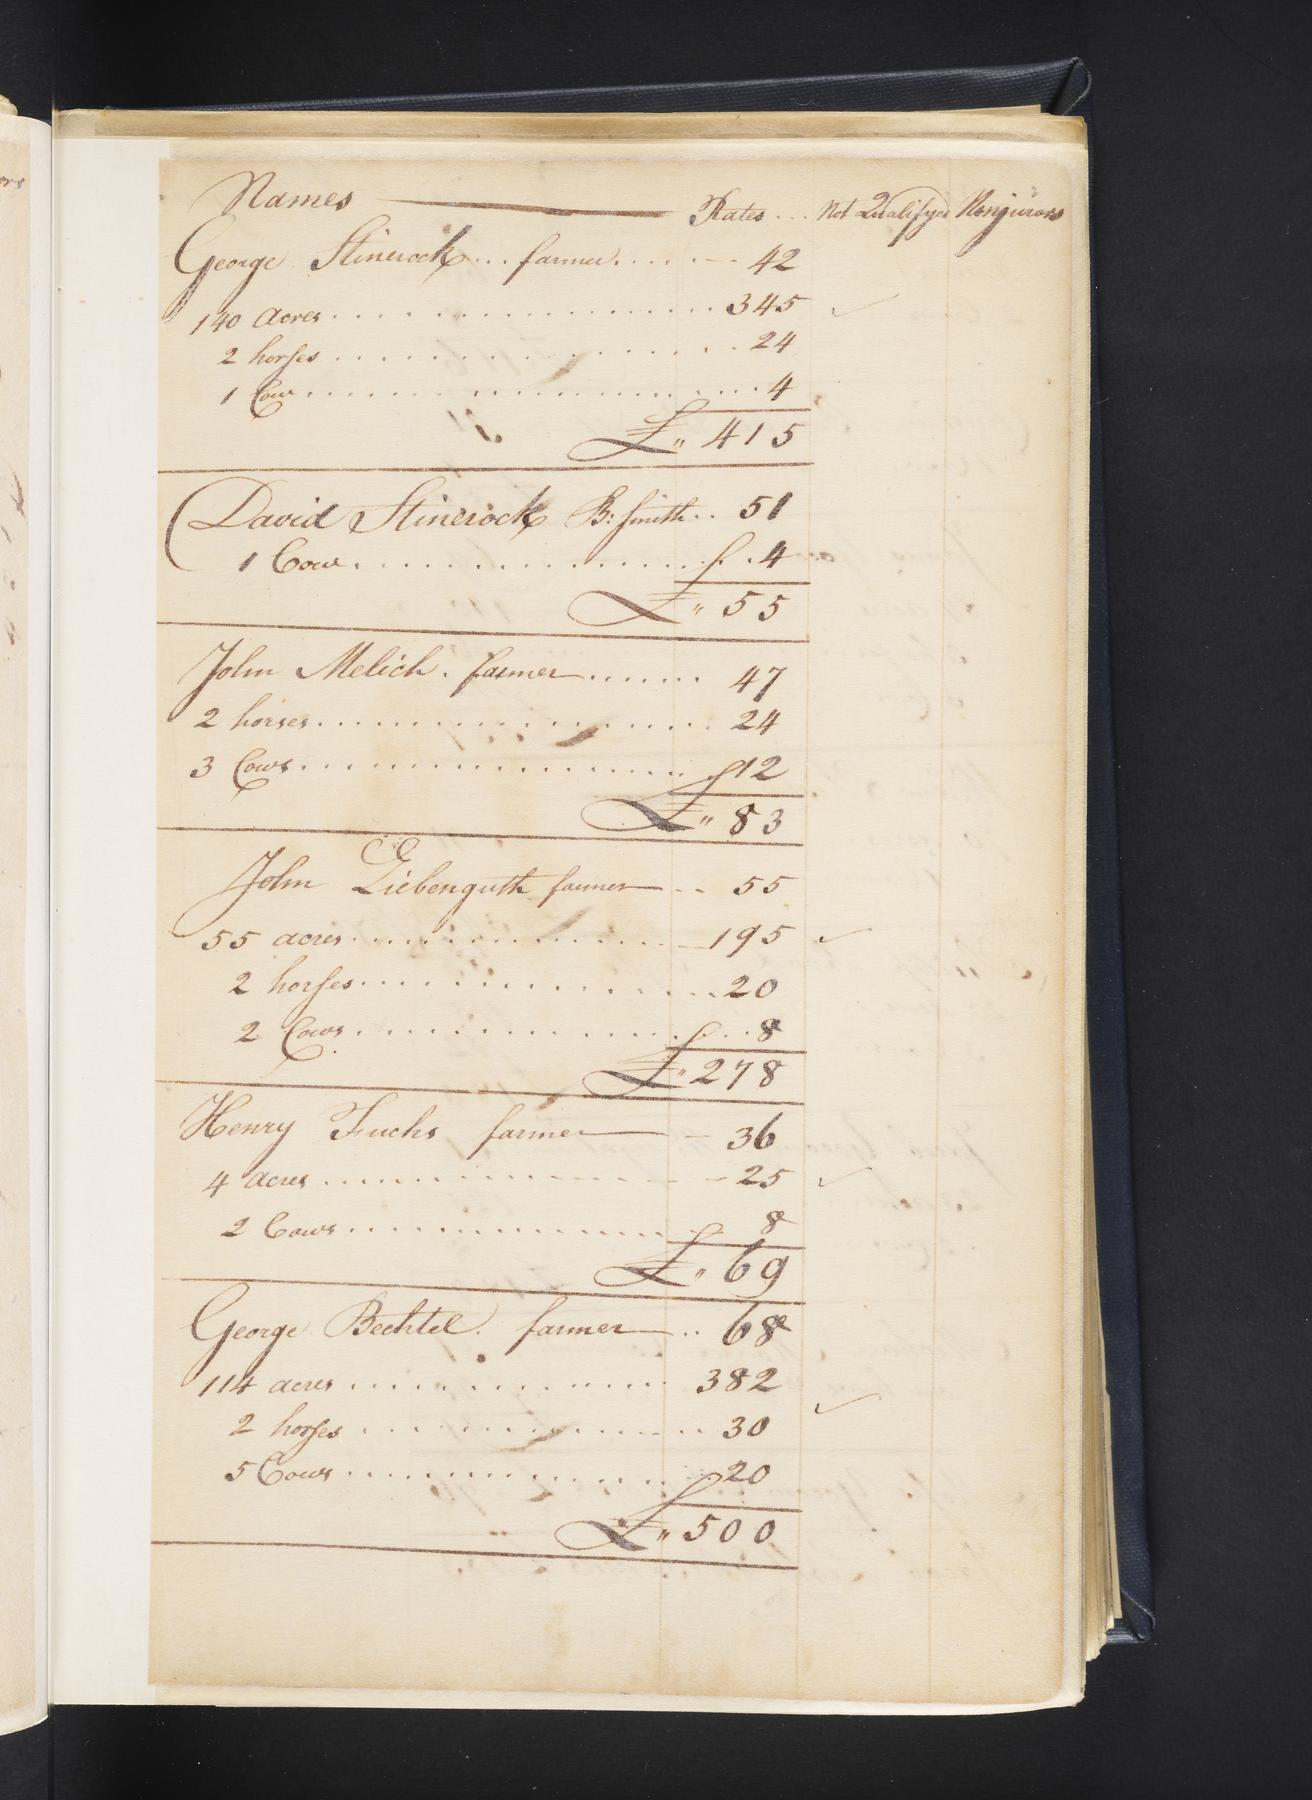 Names Rates... Not Qualifyed Nonjurors
George Stinerock... farmer..... 42
140 acres.................. 345
2 horses.................. 24
1 Cow.................. 4
£" 415
David Stinerock B: smith.. 51
1 Cow.................. 4
£" 55
John Melich. farmer....... 47
2 horses.................. 24
3 Cows.................. 12
£" 83
John Liebenguth farmer .. 55
55 acres.................. 195
2 horses.................. 20
2 Cows.................. 8
£" 278
Henry Fuchs farmer 36
4 acres.................. 25
2 Cows.................. 8
£" 69
George Bechtel. farmer .. 68
114 acres.................. 382
2 horses.................. 30
5 Cows.................. 20
£" 500